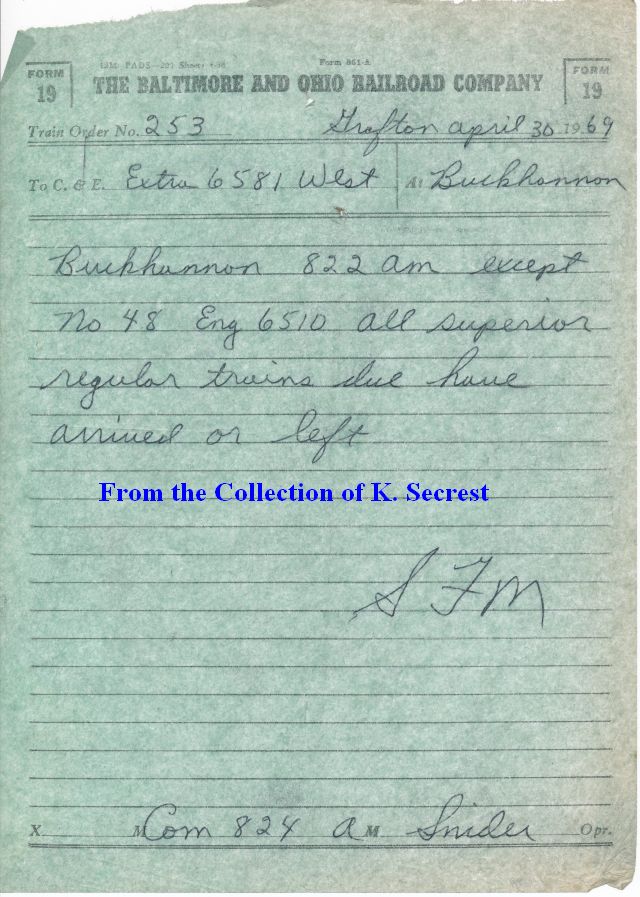 10M PADS—200 Sheets 4-58 Form 861-A
FORM 19 THE BALTIMORE AND OHIO RAILROAD COMPANY FORM 19
Train Order No. 253 Grafton april 30 1969
To C. & E. Extra 6581 West At Buckhannon
Buckhannon 822 am except
No 48 Eng 6510 all superior
regular trains due have
arrived or left
From the Collection of K. Secrest
S F M
X M Com 824 a M Snider Opr.